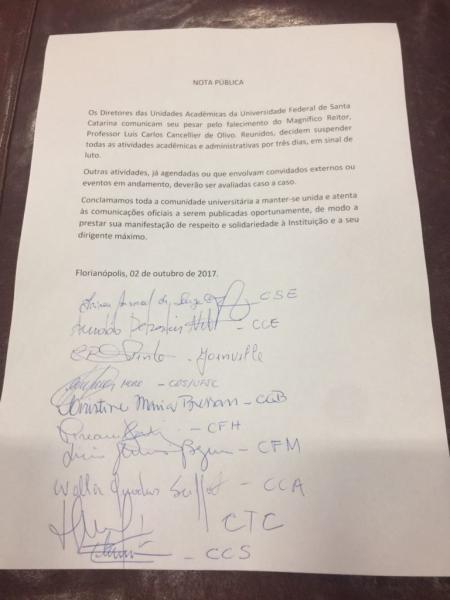 NOTA PÚBLICA
Os Diretores das Unidades Acadêmicas da Universidade Federal de Santa
Catarina comunicam seu pesar pelo falecimento do Magnífico Reitor,
Professor Luis Carlos Cancellier de Olivo. Reunidos, decidem suspender
todas as atividades acadêmicas e administrativas por três dias, em sinal de
luto.
Outras atividades, já agendadas ou que envolvam convidados externos ou
eventos em andamento, deverão ser avaliadas caso a caso.
Conclamamos toda a comunidade universitária a manter-se unida e atenta
às comunicações oficiais a serem publicadas oportunamente, de modo a
prestar sua manifestação de respeito e solidariedade à Instituição e a seu
dirigente máximo.
Florianópolis, 02 de outubro de 2017.
CSE
Arnoldo - CCE
- Joinville
- CDS/UFSC
Christine Maria Bressan - CCB
- CFH
- CFM
- CCA
CTC
- CCS